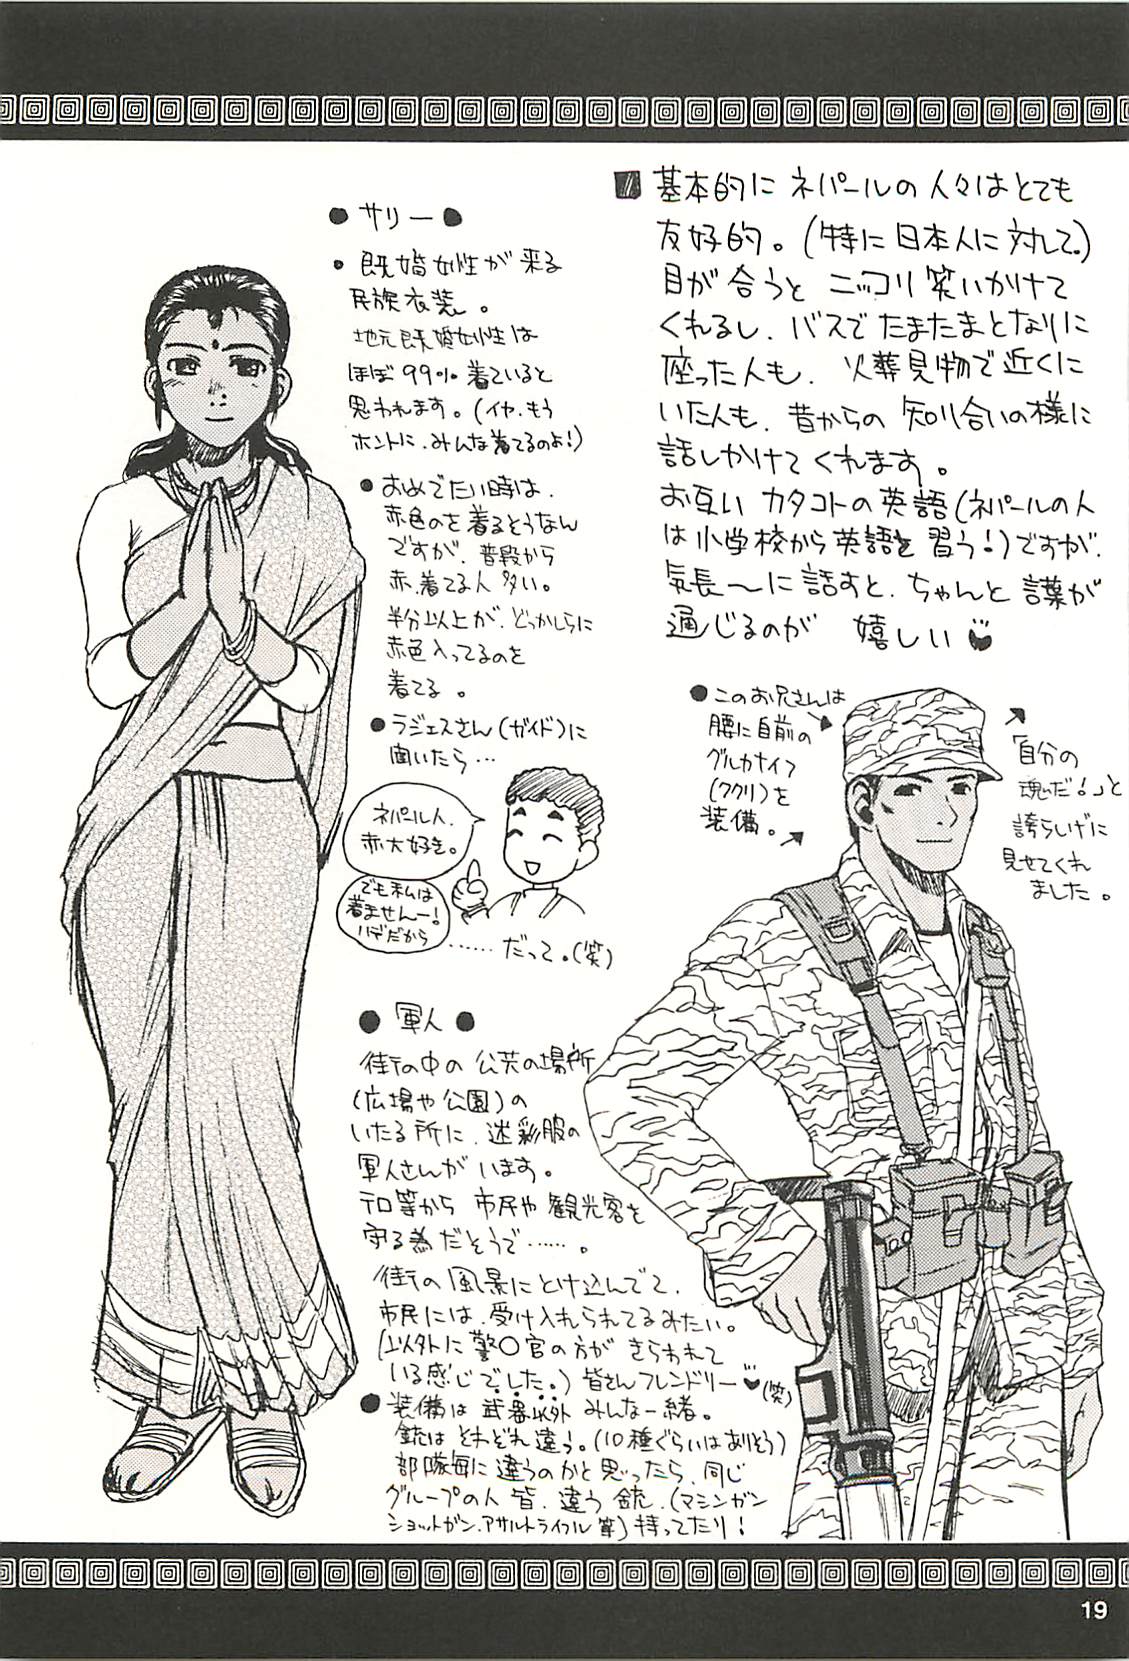 ■ 基本的に ネパールの 人々はとても
友好的。(特に 日本人に 対して。)
目が 合うと ニッコリ 笑いかけて
くれるし、バスで たまたま となりに
座った人も、火葬見物で 近くに
いた人も、昔からの 知り合いの様に
話しかけて くれます。
お互い カタコトの 英語(ネパールの人
は 小学校から 英語を 習う!)ですが、
気長〜に 話すと、ちゃんと 言葉が
通じるのが 嬉しい
● サリー ●
• 既婚女性が 来る
民族衣装。
地元既婚女性は
ほぼ 99% 着ていると
思われます。(イヤ、もう
ホントに、みんな着てるのよ!)
● おめでたい時は、
赤色のを 着るそうなん
ですが、普段から
赤、着てる人 多い。
半分以上が、どっかしらに
赤色入ってるのを
着てる。
● ラジェスさん(ガイド)に
聞いたら…
ネパール人、
赤大好き。
でも 私は
着ませんー!
ハデだから
……だって。(笑)
● このお兄さんは
腰に自前の
グルカナイフ
(ククリ)を
装備。
「自分の
魂だ!」と
誇らしげに
見せてくれ
ました。
● 軍人 ●
街の中の 公共の場所
(広場や 公園)の
いたる所に、迷彩服の
軍人さんが います。
テロ等から 市民や 観光客を
守る為 だそうで……。
街の 風景に とけ込んでて、
市民には、受け入れられてるみたい。
(以外に 警〇官の方が きらわれて
いる感じでした。) 皆さんフレンドリー (笑)
● 装備は 武器以外 みんな一緒。
銃は それぞれ違う。(10種ぐらいはありそう)
部隊毎に 違うのかと 思ったら、同じ
グループの人 皆、違う 銃、(マシンガン
ショットガン、アサルトライフル 等) 持ってたり!
19